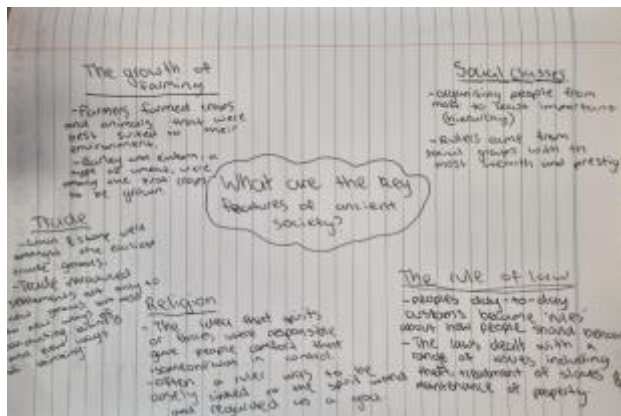 The growth of
farming
- Farmers farmed crops
and animals that were
best suited to their
environment.
- Barley and einkorn, a
type of wheat, were
among the first crops
to be grown.
Social classes
- organising people from
most to least important
(hierarchy)
- Rulers came from
social groups with th
most wealth and prestig
What are the key
features of ancient
society?
Trade
the earliest
trade goods.
- Trade introduced
not only to
new goods
new ways of
and new ways
Religion
- The idea that spirits
or forces were responsible
gave people comfort that
someone was in control.
- often a ruler was to be
closely linked to the spirit world
and regarded as a god.
The rule of law
- peoples day-to-day
customs became 'rules'
about how people should behave
- The laws dealt with a
range of issues including
theft, treatment of slaves &
maintenance of property